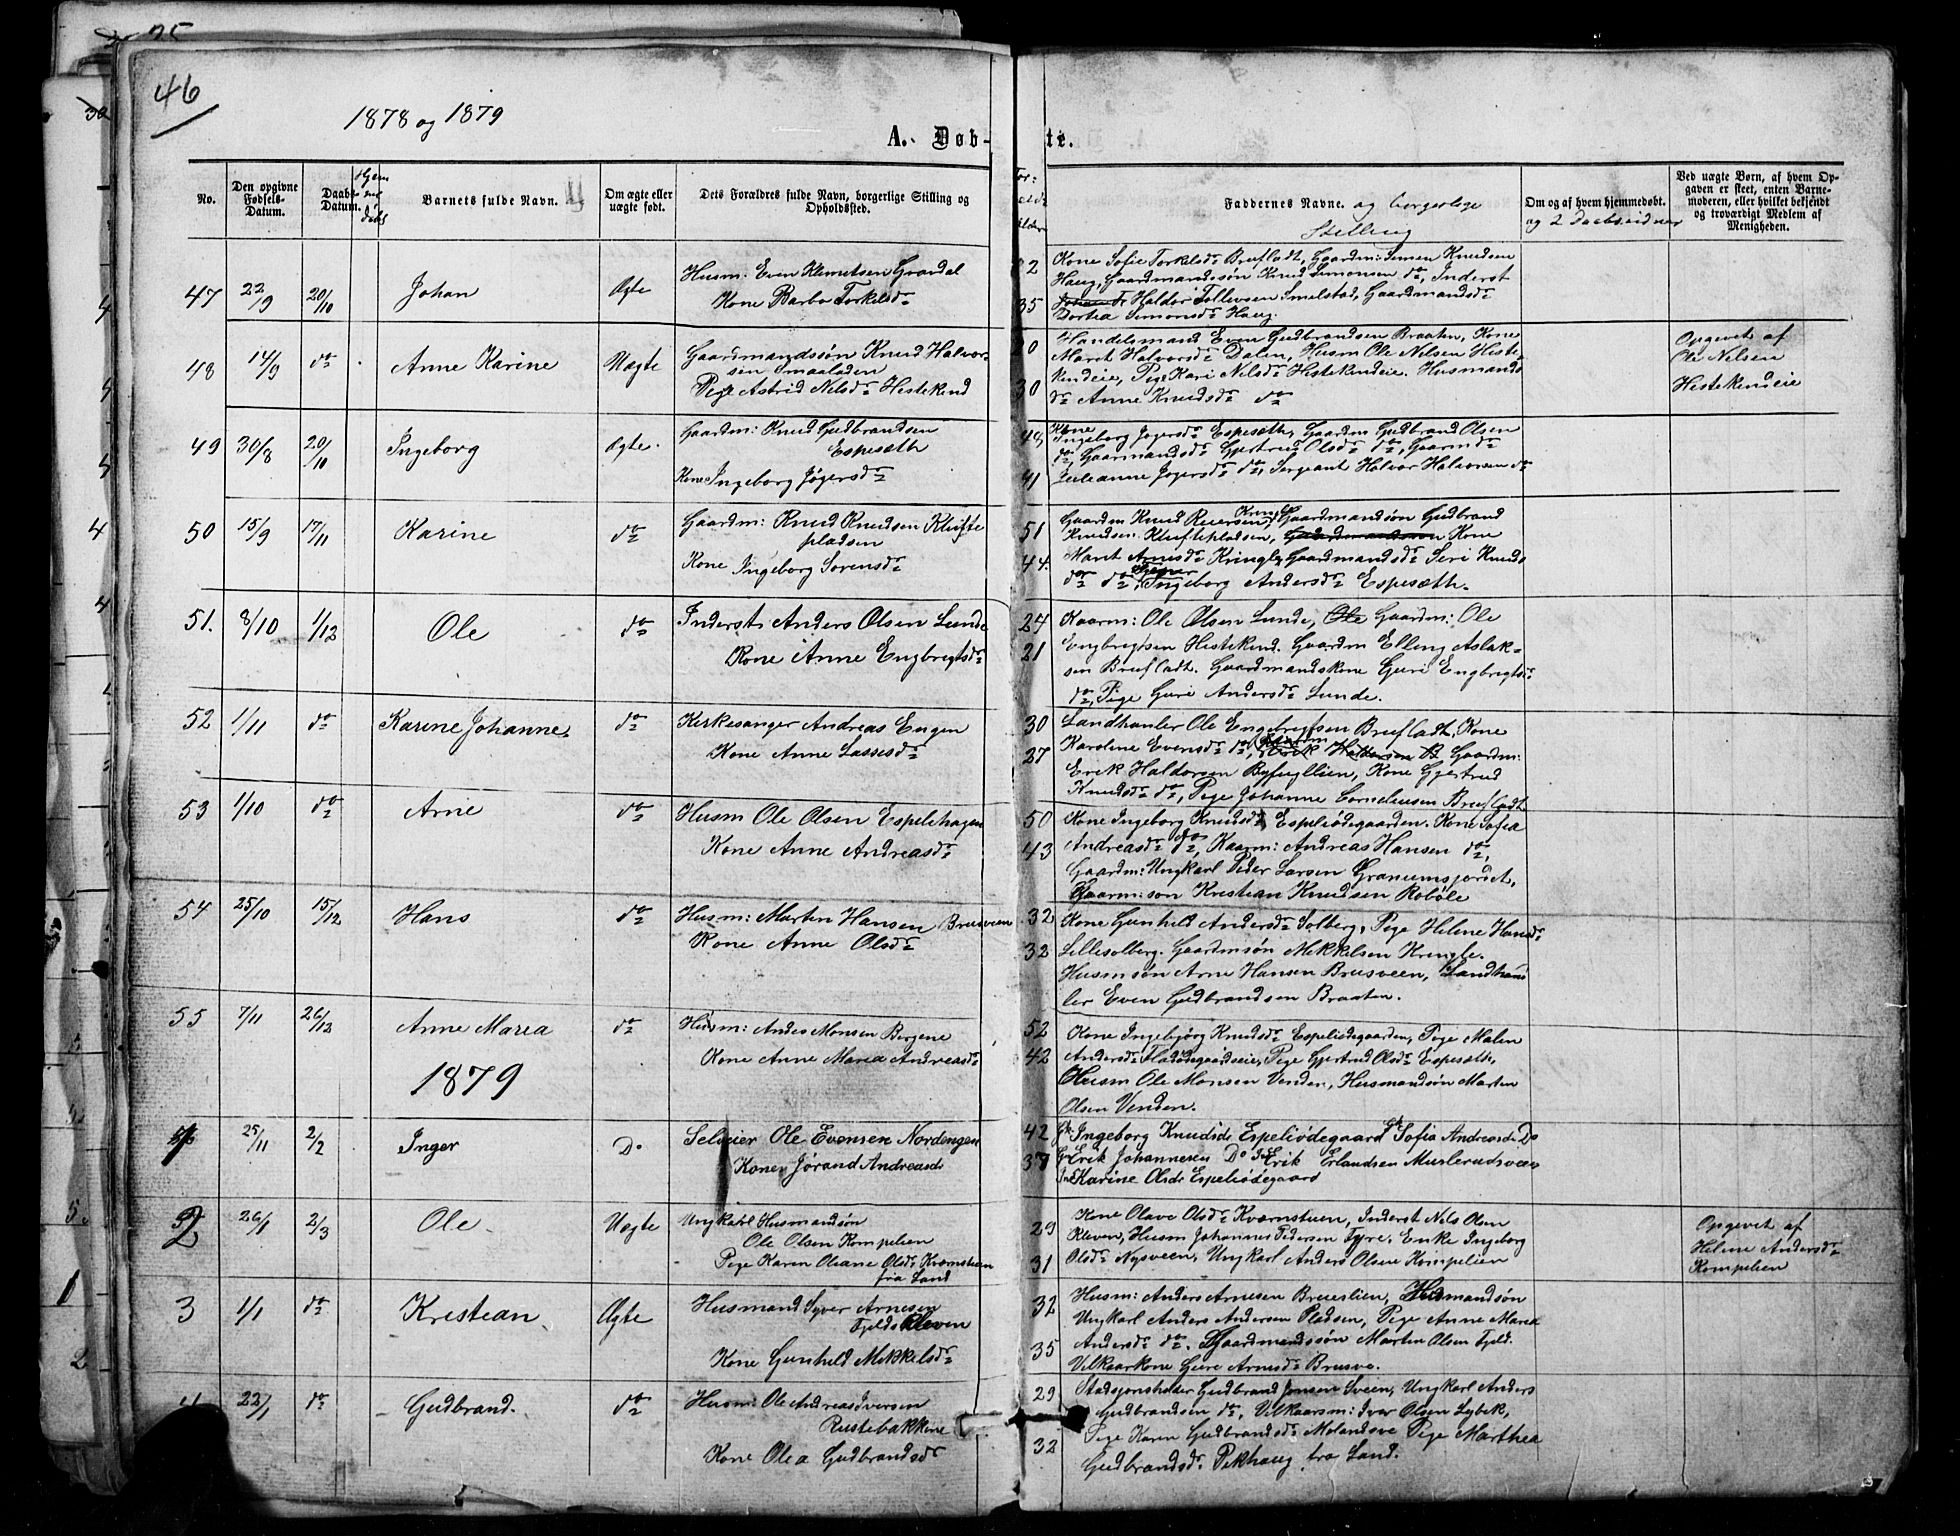 46
1878 og 1879
A. Døb-
te.
No.
Den opgivne Fødsels-Datum.
Daabs Datum.
Hjem
døbt
Barnets fulde Navn.
Om ægte eller uægte født.
Dets Forældres fulde Navn, borgerlige Stilling og Opholdssted.
Faddernes Navne. og borgerlige Stilling
Om og af hvem hjemmedøbt. og 2 Daabsvidner
Ved uægte Børn, af hvem Opgaven er skeet, enten Barnemoderen, eller hvilket bekjendt og troværdigt Medlem af Menigheden.
47 22/9 20/10 Johan Ægte
Husm: Even Klemetsen Gaardal
Kone Barbo Torkelsdr
32
35
Kone Sofie Torkelsdr Brufladt, Gaardm: Simen Knudsen
Haug, Gaardmandssøn Knud Simonsen do, Inderst
Haldor Tollevsen Smelstad, Gaardmandsdr
Dortea Simonsdr Haug.
48 14/9 do Anne Karine Uægte
Gaardmandssøn Knud Halvor-
sen Smaaladen
Pige Astrid Nelsdr Histekind
20
30
Handelsmand Even Gudbrandsen Braaten, Kone
Marit Halvorsdr Dalen, Husm Ole Nelsen Histe-
kindeie, Pige Kari Nelsdr Histekindeie. Husmands
dr Anne Knudsdr do
Opgivet af
Ole Nelsen
Histekindeie
49 30/8 20/10 Ingeborg Ægte.
Gaardm: Knud Gudbrandsen
Espesæth
Kone Ingeborg Jøgersdr
48
41
Kone
Ingeborg Jøgersdr Espesæth, Gaardm Gudbrand Olsen
do, Gaarmandsdr Gjertrud Olsdr do, Gaarmdr
Juleanne Jogersdr do, Sergeant Halvor Halvorsen do
50 15/9 17/11 Karine do
Gaardm: Knud Knudsen Klufte
pladsen
Kone Ingeborg Sorensdr
51
44.
Gaardm Knud Reiersen Kringle, Gaardmandsøn Gudbrand
Knudsen Kluftepladsen, Kone
Marit Arnesdr Kringle, Gaardmandsdr Siri Knuds
dr do, Ingeborg Andersdr Espesæth.
51. 8/10 1/12 Ole do
Inderst Anders Olsen Lunde
Kone Anne Engbregtsdr
24
21
Kaarm: Ole Olsen Lunde, Gaardm: Ole
Engbregtsen Histekind. Gaardm Elling Aslak-
sen Brufladt. Gaardmandskone Guri Engbregtsdr
do, Pige Guri Andersdr Lunde.
52 1/11 do Karine Johanne do
Kirkesanger Andreas Engen
Kone Anne Lassesdr
30
27
Landhanler Ole Engebregtsen Brufladt, Kone
Karoline Evensdr do, Gaardm:
Erik Haldorsen Byfugllien, Kone Gjertrud
Knudsdr do, Pige Johanne Corneliusen Brufladt
53 1/10 do Arne do
Husm Ole Olsen Espelihagen
Kone Anne Andreasdr
50
43
Kone Ingeborg Knudsdr Espeliødegaarden. Kone Sofia
Andreasdr do, Kaarm: Andreas Hansen do,
Gaardm: Ungkarl Peder Larsen Granumsjordet,
Gaarm: søn Kristian Knudsen Robøle
54 25/10 15/12 Hans do
Husm: Martin Hansen Brusveen
Kone Anne Olsdr
32
32
Kone Gunhild Andersdr Solberg, Pige Helene Hansdr
Lillesolberg. Gaardmsøn Mekkelsen Kringle.
Husmsøn Arne Hansen Brusveen, Landhand
ler Even Gudbrandsen Braaten.
55 7/11 26/12 Anne Maria do
Husm: Andes Monsen Bergene
Kone Anne Maria Andreasdr
52
42
Kone Ingebjørg Knudsdr Espeliødegaarden, Pige Malen
Andersdr Fladødegaardseie, Pige Gjertrud Olsdr Espesæth,
Husm Ole Monsen Venden, Husmandsøn Marten
Olsen Venden.
1879
1 25/11 2/2 Inger Do
Selveier Ole Evensen Nordengen
Kone Jørand Andreasd
42
37
Ingeborg Knudsdr Espeliødegaard Sofia Andreasdr Do
Erik Johannesen Do Erik Erlandsen Muslerudsveen
Karine Olsdr Espeliødegaard
2 26/1 2/3 Ole Uægte
Ungkarl Husmandsøn
Ole Olsen Kompelien
Pige Karen Oliane Olsdr Kværnstuen
fra Land
29
31
Kone Olave Olsdr Kværnstuen, Inderst Nels Olsen
Kleven, Husm Johannes Pedersen Fyre, Enke Ingeborg
Olsdr Nysveen, Ungkarl Anders Olsen Kompelien
Opgivet af
Helene Andersdr
Kompelien
3 1/1 do Kristian Ægte
Husmand Syver Arnesen
Fjeldskleven
Kone Gunhild Mekkelsdr
32
35
Husm: Anders Arnesen Bruslien, Husmandsøn
Ungkarl Anders Andersen Pladsen, Pige Anne Maria
Andersdr do. Gaardmandssøn Martin Olsen Fjeld.
Vilkaarkone Guri Arnesdr Brusve.
4 22/1 do Gudbrand. do
Husm: Ole Andreas Iversen
Rustebakkene
Kone Olea Gudbrandsdr
29
32
Stadsjonsholder Gudbrand Jensen Sveen, Ungkarl Anders
Gudbrandsen do, Vilkaarsm: Iver Olsen Lybek,
Pige Karen Gudbrandsdr Molandsve Pige Marthea
Gudbrandsdr Pikhaug fra Land.